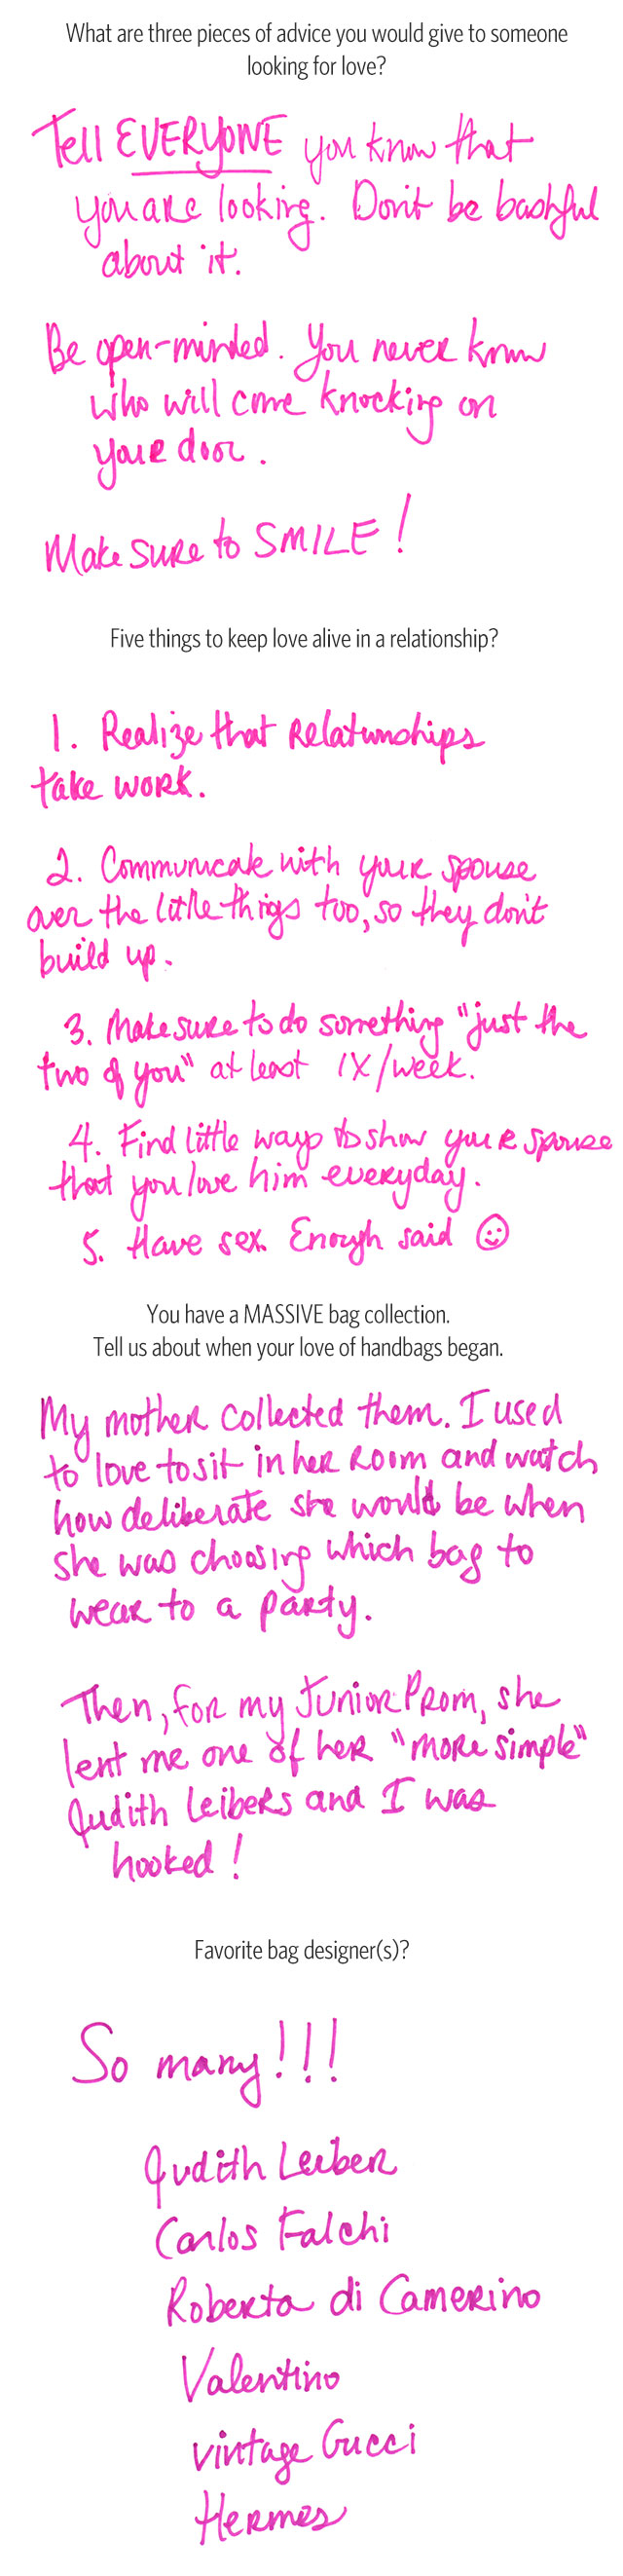 What are three pieces of advice you would give to someone
looking for love?
Tell EVERYONE you know that
you are looking. Don't be bashful
about it.
Be open-minded. You never know
who will come knocking on
your door.
Make sure to SMILE!
Five things to keep love alive in a relationship?
1. Realize that Relationships
take work.
2. Communicate with your spouse
over the little things too, so they don't
build up.
3. Make sure to do something "just the
two of you" at least 1X/week.
4. Find little ways to show your spouse
that you love him everyday.
5. Have sex. Enough said ☺
You have a MASSIVE bag collection.
Tell us about when your love of handbags began.
My mother collected them. I used
to love to sit in her room and watch
how deliberate she would be when
she was choosing which bag to
wear to a party.
Then, for my Junior Prom, she
lent me one of her "more simple"
Judith Leibers and I was
hooked!
Favorite bag designer(s)?
So many!!!
Judith Leiber
Carlos Falchi
Roberta di Camerino
Valentino
vintage Gucci
Hermes